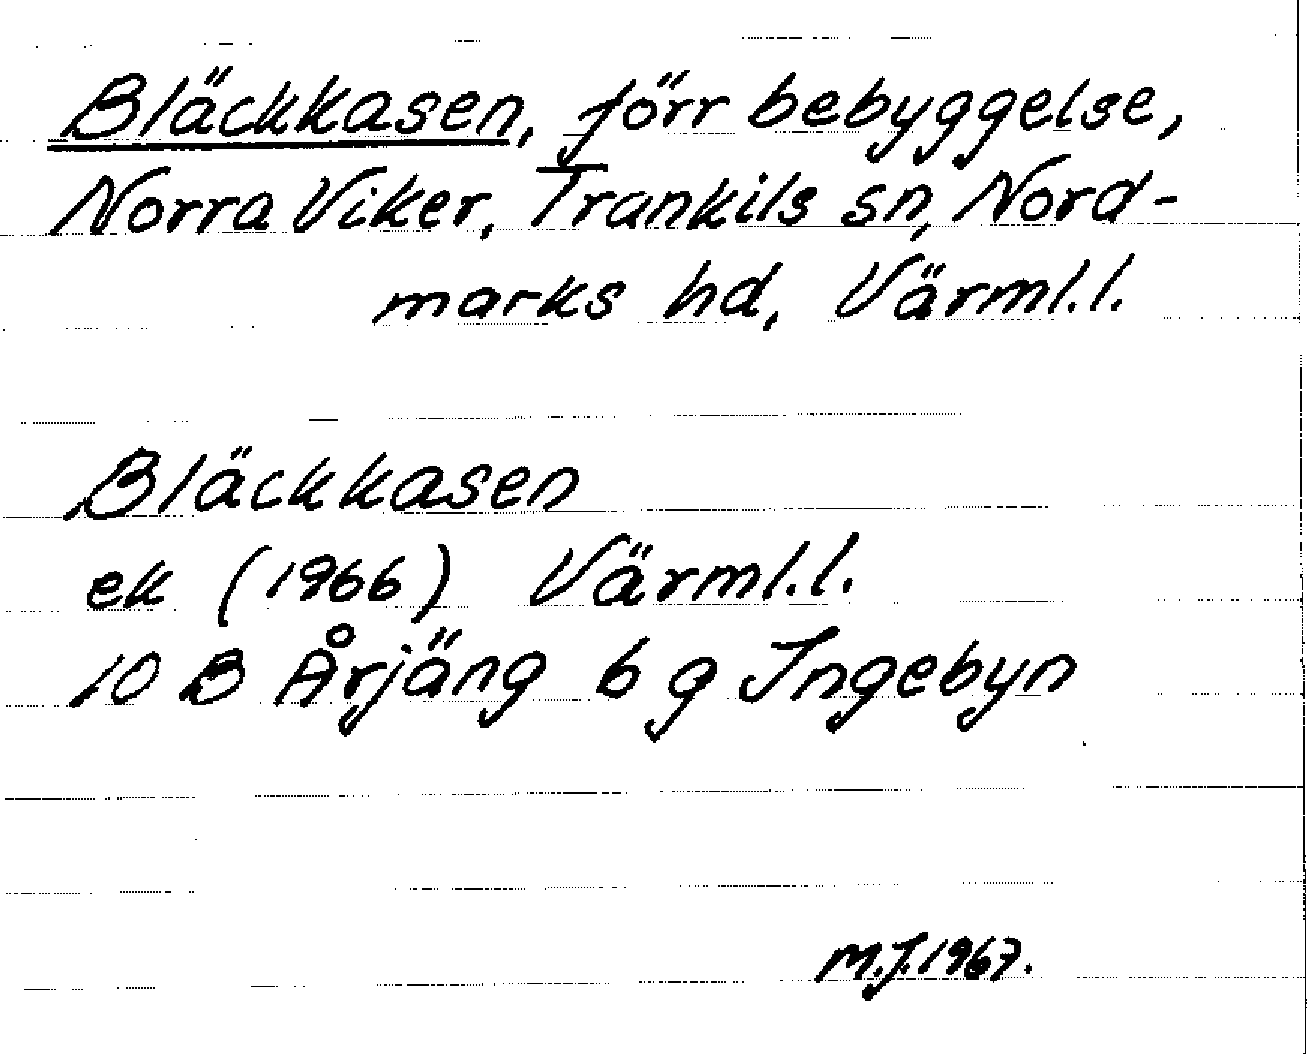 Bläckkasen, förr bebyggelse,
Norra Viker, Trankils sn, Nord-
marks hd, Värml.l.
Bläckkasen
ek (1966) Värml.l.
10 B Årjäng 6 g Ingebyn
M.J.1967.